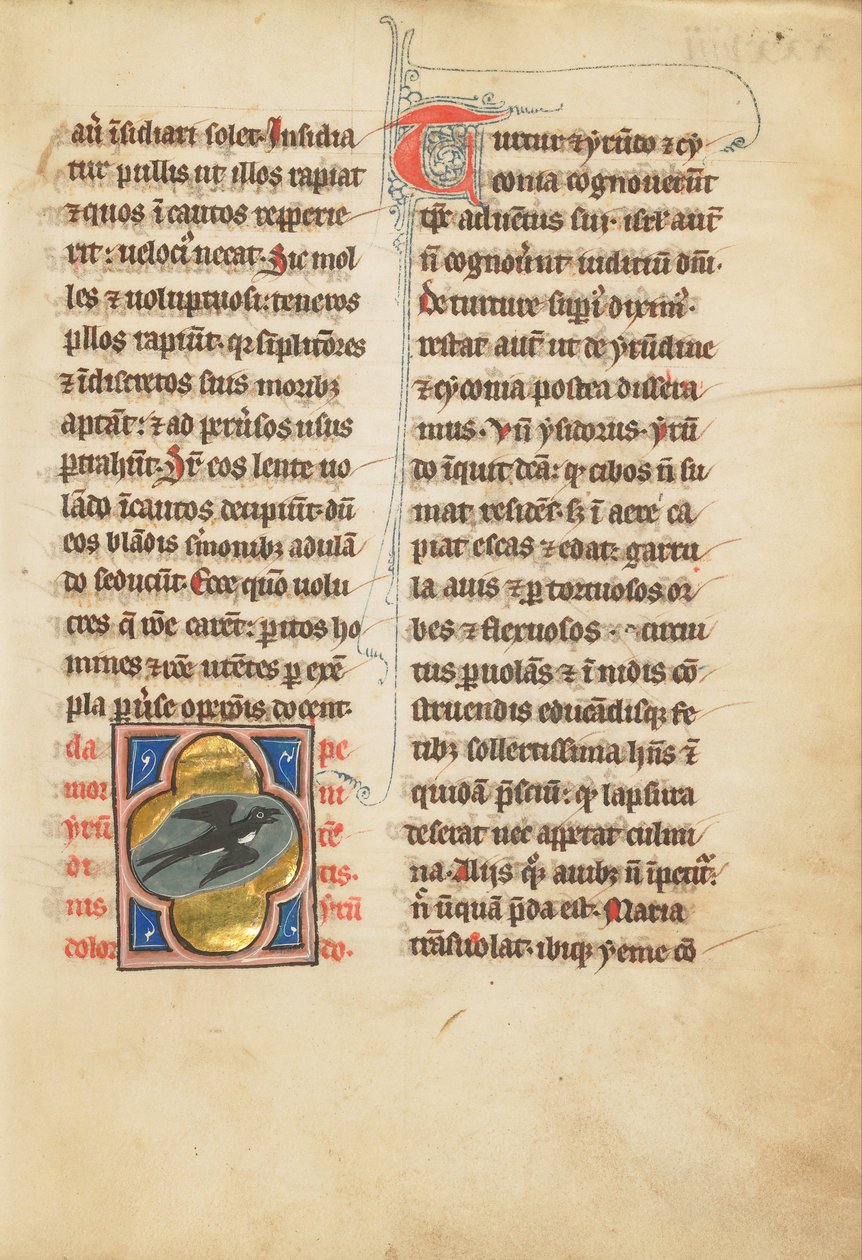 aũ ĩsidiari solet. Insidia
tur pullis ut illos rapiat
⁊ quos ĩcautos repperie
rit: uelociꝰ necat. Sic mol
les ⁊ uoluptuosi: teneros
pllos rapiũt. qr sĩplitiores
⁊ ĩdiscretos suis moribꝫ
aptãt: ⁊ ad peruͥsos usus
ꝑtrahũt. Sꝫ eos lente uo
lãdo ĩcautos decipiũt. dũ
eos blãdis sͥmonibꝫ adulã
do seducũt. Ecce quõ uolu
cres q̃ rõe carẽt: ꝑitos ho
mines ⁊ rõe utẽtes ꝑ exẽ
pla ꝑuͥse oꝑatõis docent.
da pe
mor ni
yrũ tẽ
di tis.
nis yrũ
dolor do.
Turtur ⁊ yrũdo ⁊ cy
conia cognouerũt
tp̃r aduẽtus sui. isrl autẽ
ñ cognouͥnt iuditiũ dñi.
De turture supͥ diximꝰ.
restat aũt ut de yrũdine
⁊ cyconia postea dissera
mus. Vñ ysidorus. yrũ
do ĩquit dc̃a: qꝫ cibos ñ su
mat residẽs. sꝫ ĩ aere ca
piat escas ⁊ edat: garru
la auis ⁊ ꝑ tortuosos or
bes ⁊ flexuosos circui
tus ꝑuolãs ⁊ ĩ nidis cõ
struendis educãdisqꝫ fe
tibꝫ sollertissima hñs ⁊
quidã p̃sciũ: qꝫ lapsura
deserat nec appetat culmi
na. Alijs qꝫ auibꝫ ñ ĩpetitͣ.
ñ ũquã p̃da est. Maria
trãsuolat. ibiqꝫ yeme cõ